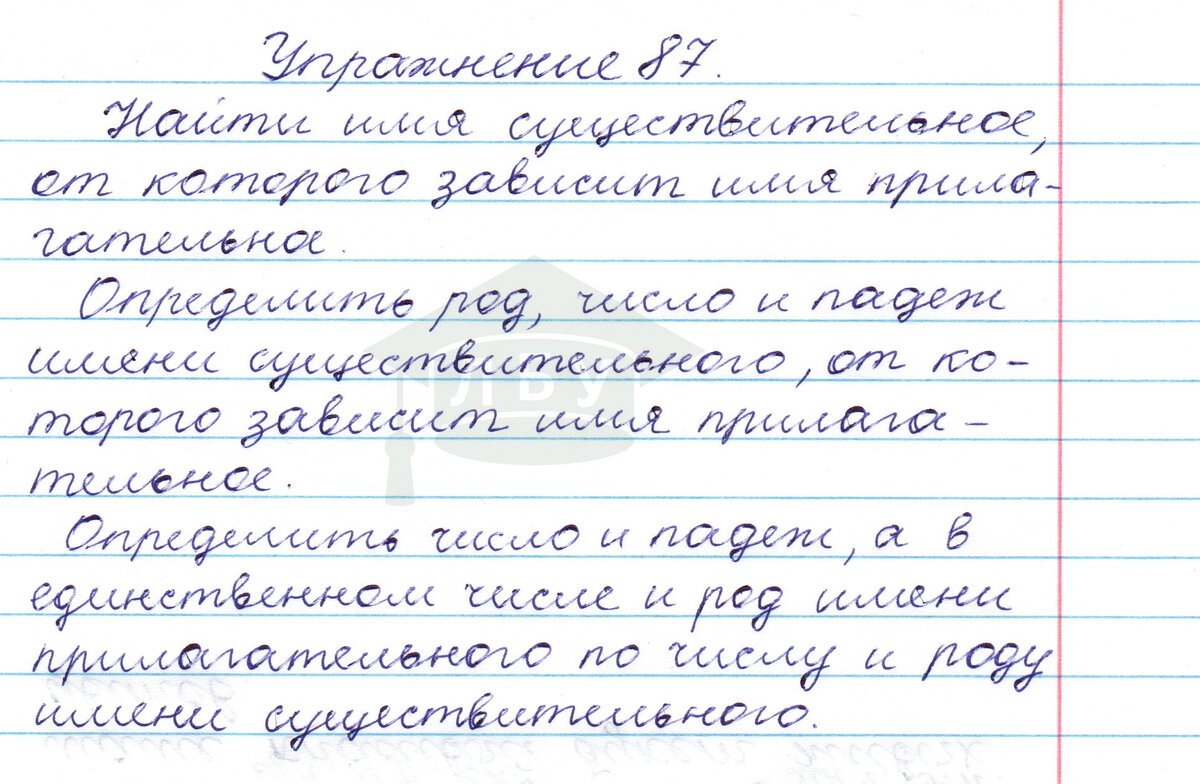 Упражнение 87.
Найти имя существительное,
от которого зависит имя прила-
гательное.
Определить род, число и падеж
имени существительного, от ко-
ЛВУ
торого зависит имя прилага-
тельное.
Определить число и падеж, а в
единственном числе и род имени
прилагательного по числу и роду
имени существительного.